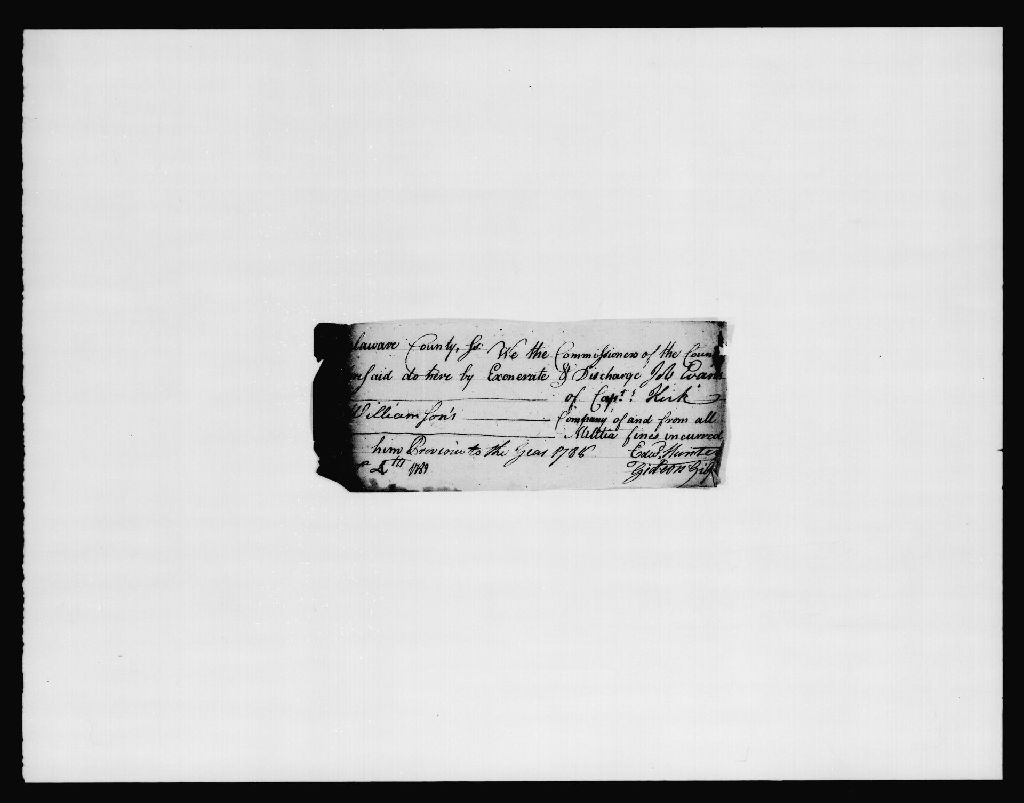 laware County, Ss. We the Commissioners of the Coun
said do here by Exonerate & Discharge Job Evans
of Capt.s Kirk
Williamson's Company of and from all
Militia fines incurred
him Previous to the Year 1788 Edwd. Hunter
4th 1789 Gideon